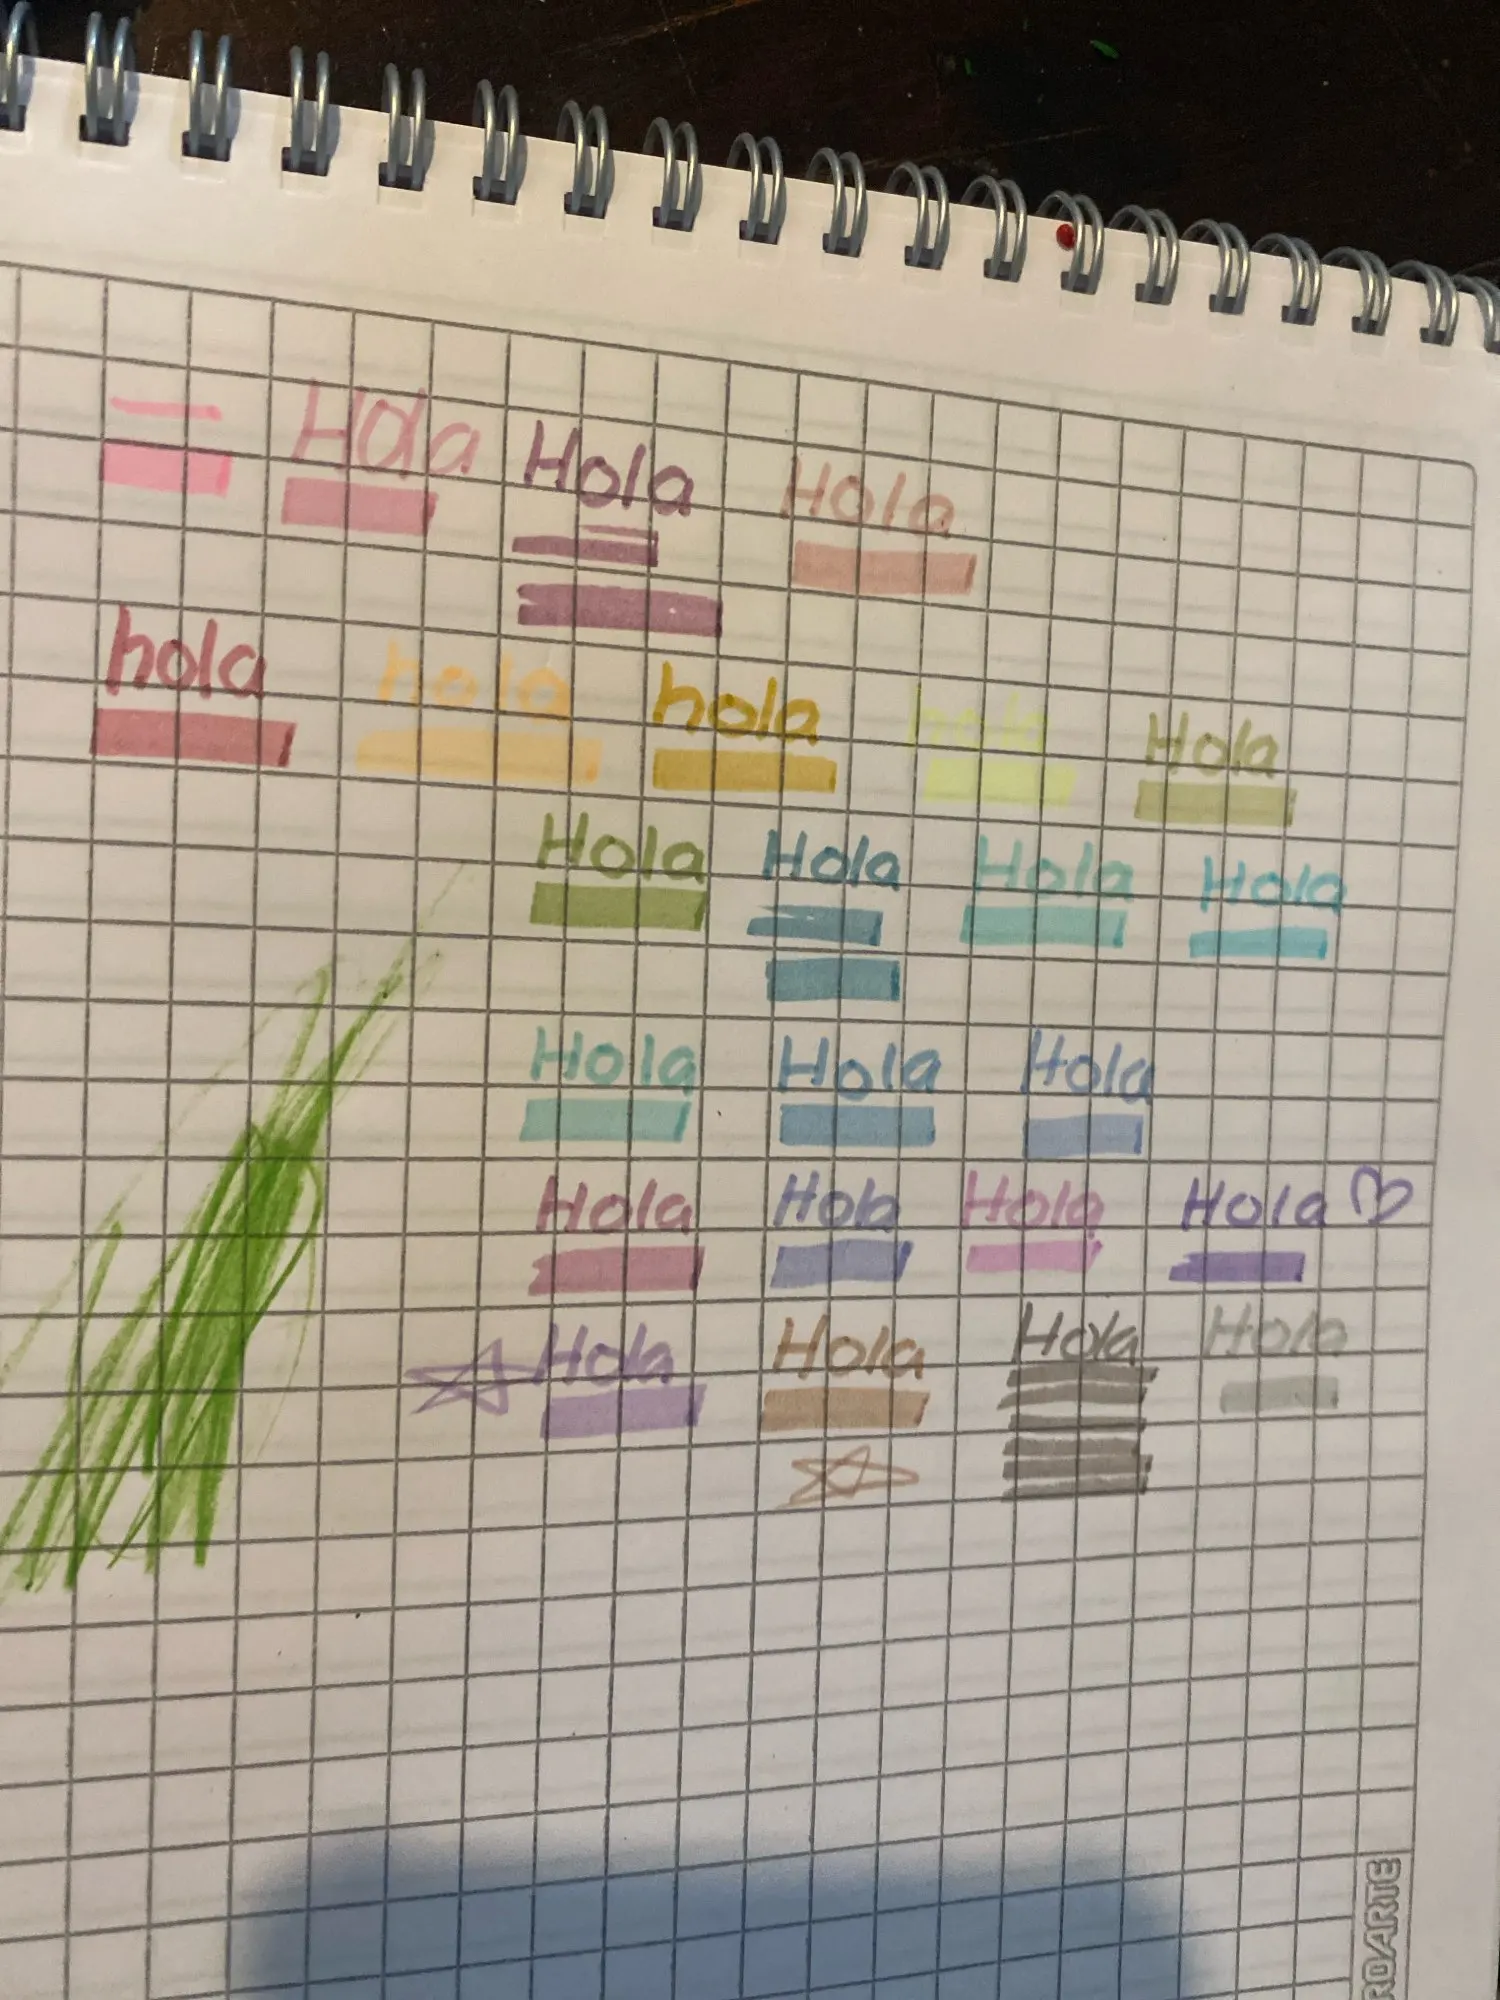 Hola Hola Hola
hola hola hola hola Hola
Hola Hola Hola Hola
Hola Hola Hola
Hola Hola Hola Hola
Hola Hola Hola Hola
ROARTE